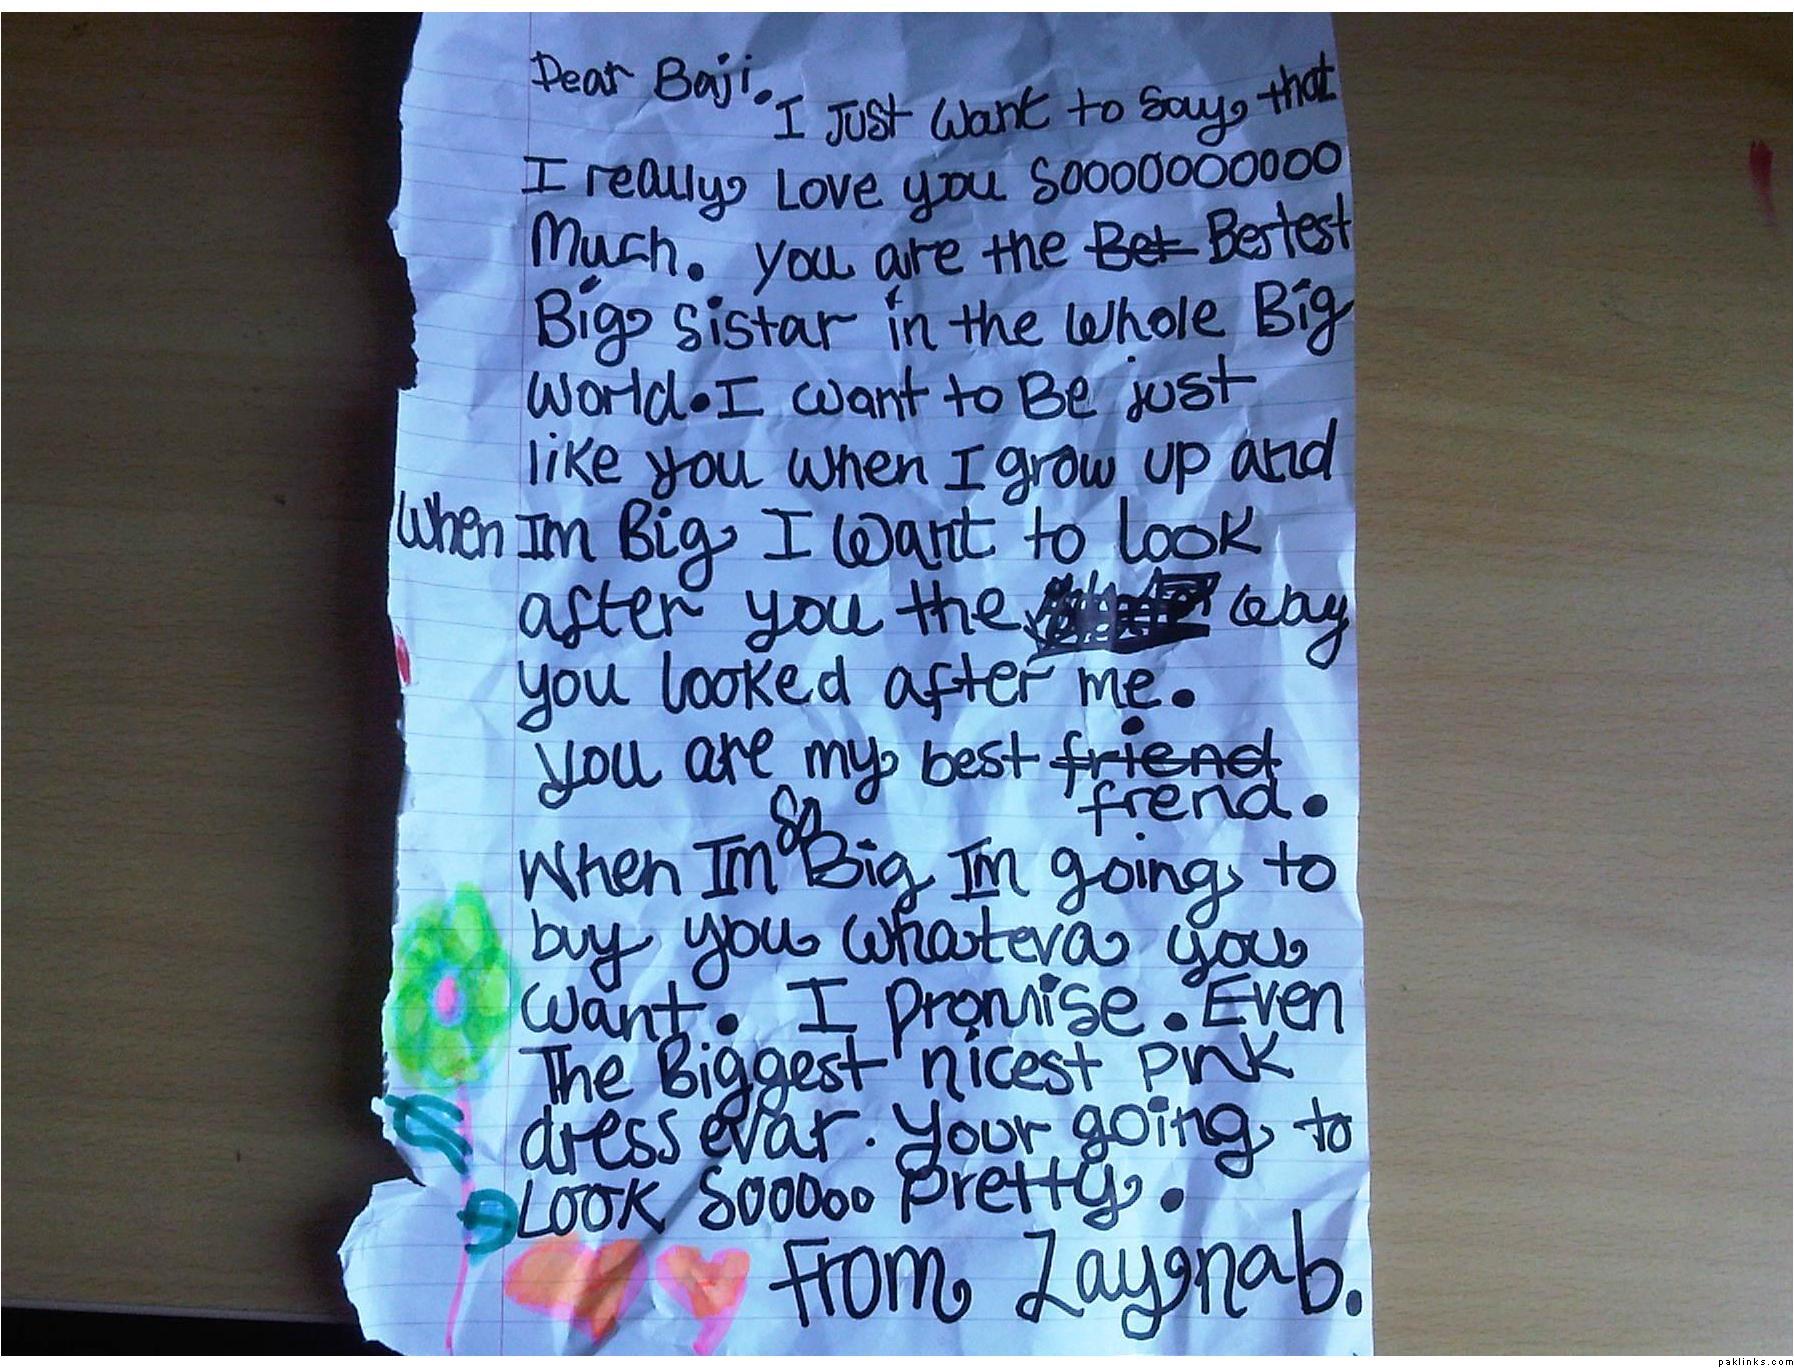 Dear Baji.
I Just Want to say that
I really Love you Soooooooooo
Much. you are the Bet Bestest
Big Sistar in the Whole Big
World. I want to Be just
like you when I grow up and
When Im Big I Want to look
after you the way
you looked after me.
you are my best friend
frend.
When Im so Big Im going to
buy you whateva you
want. I Promise. Even
The Biggest nicest Pink
dress evar. Your going to
Look Sooooo Pretty.
From Zaynab.
paklinks.com